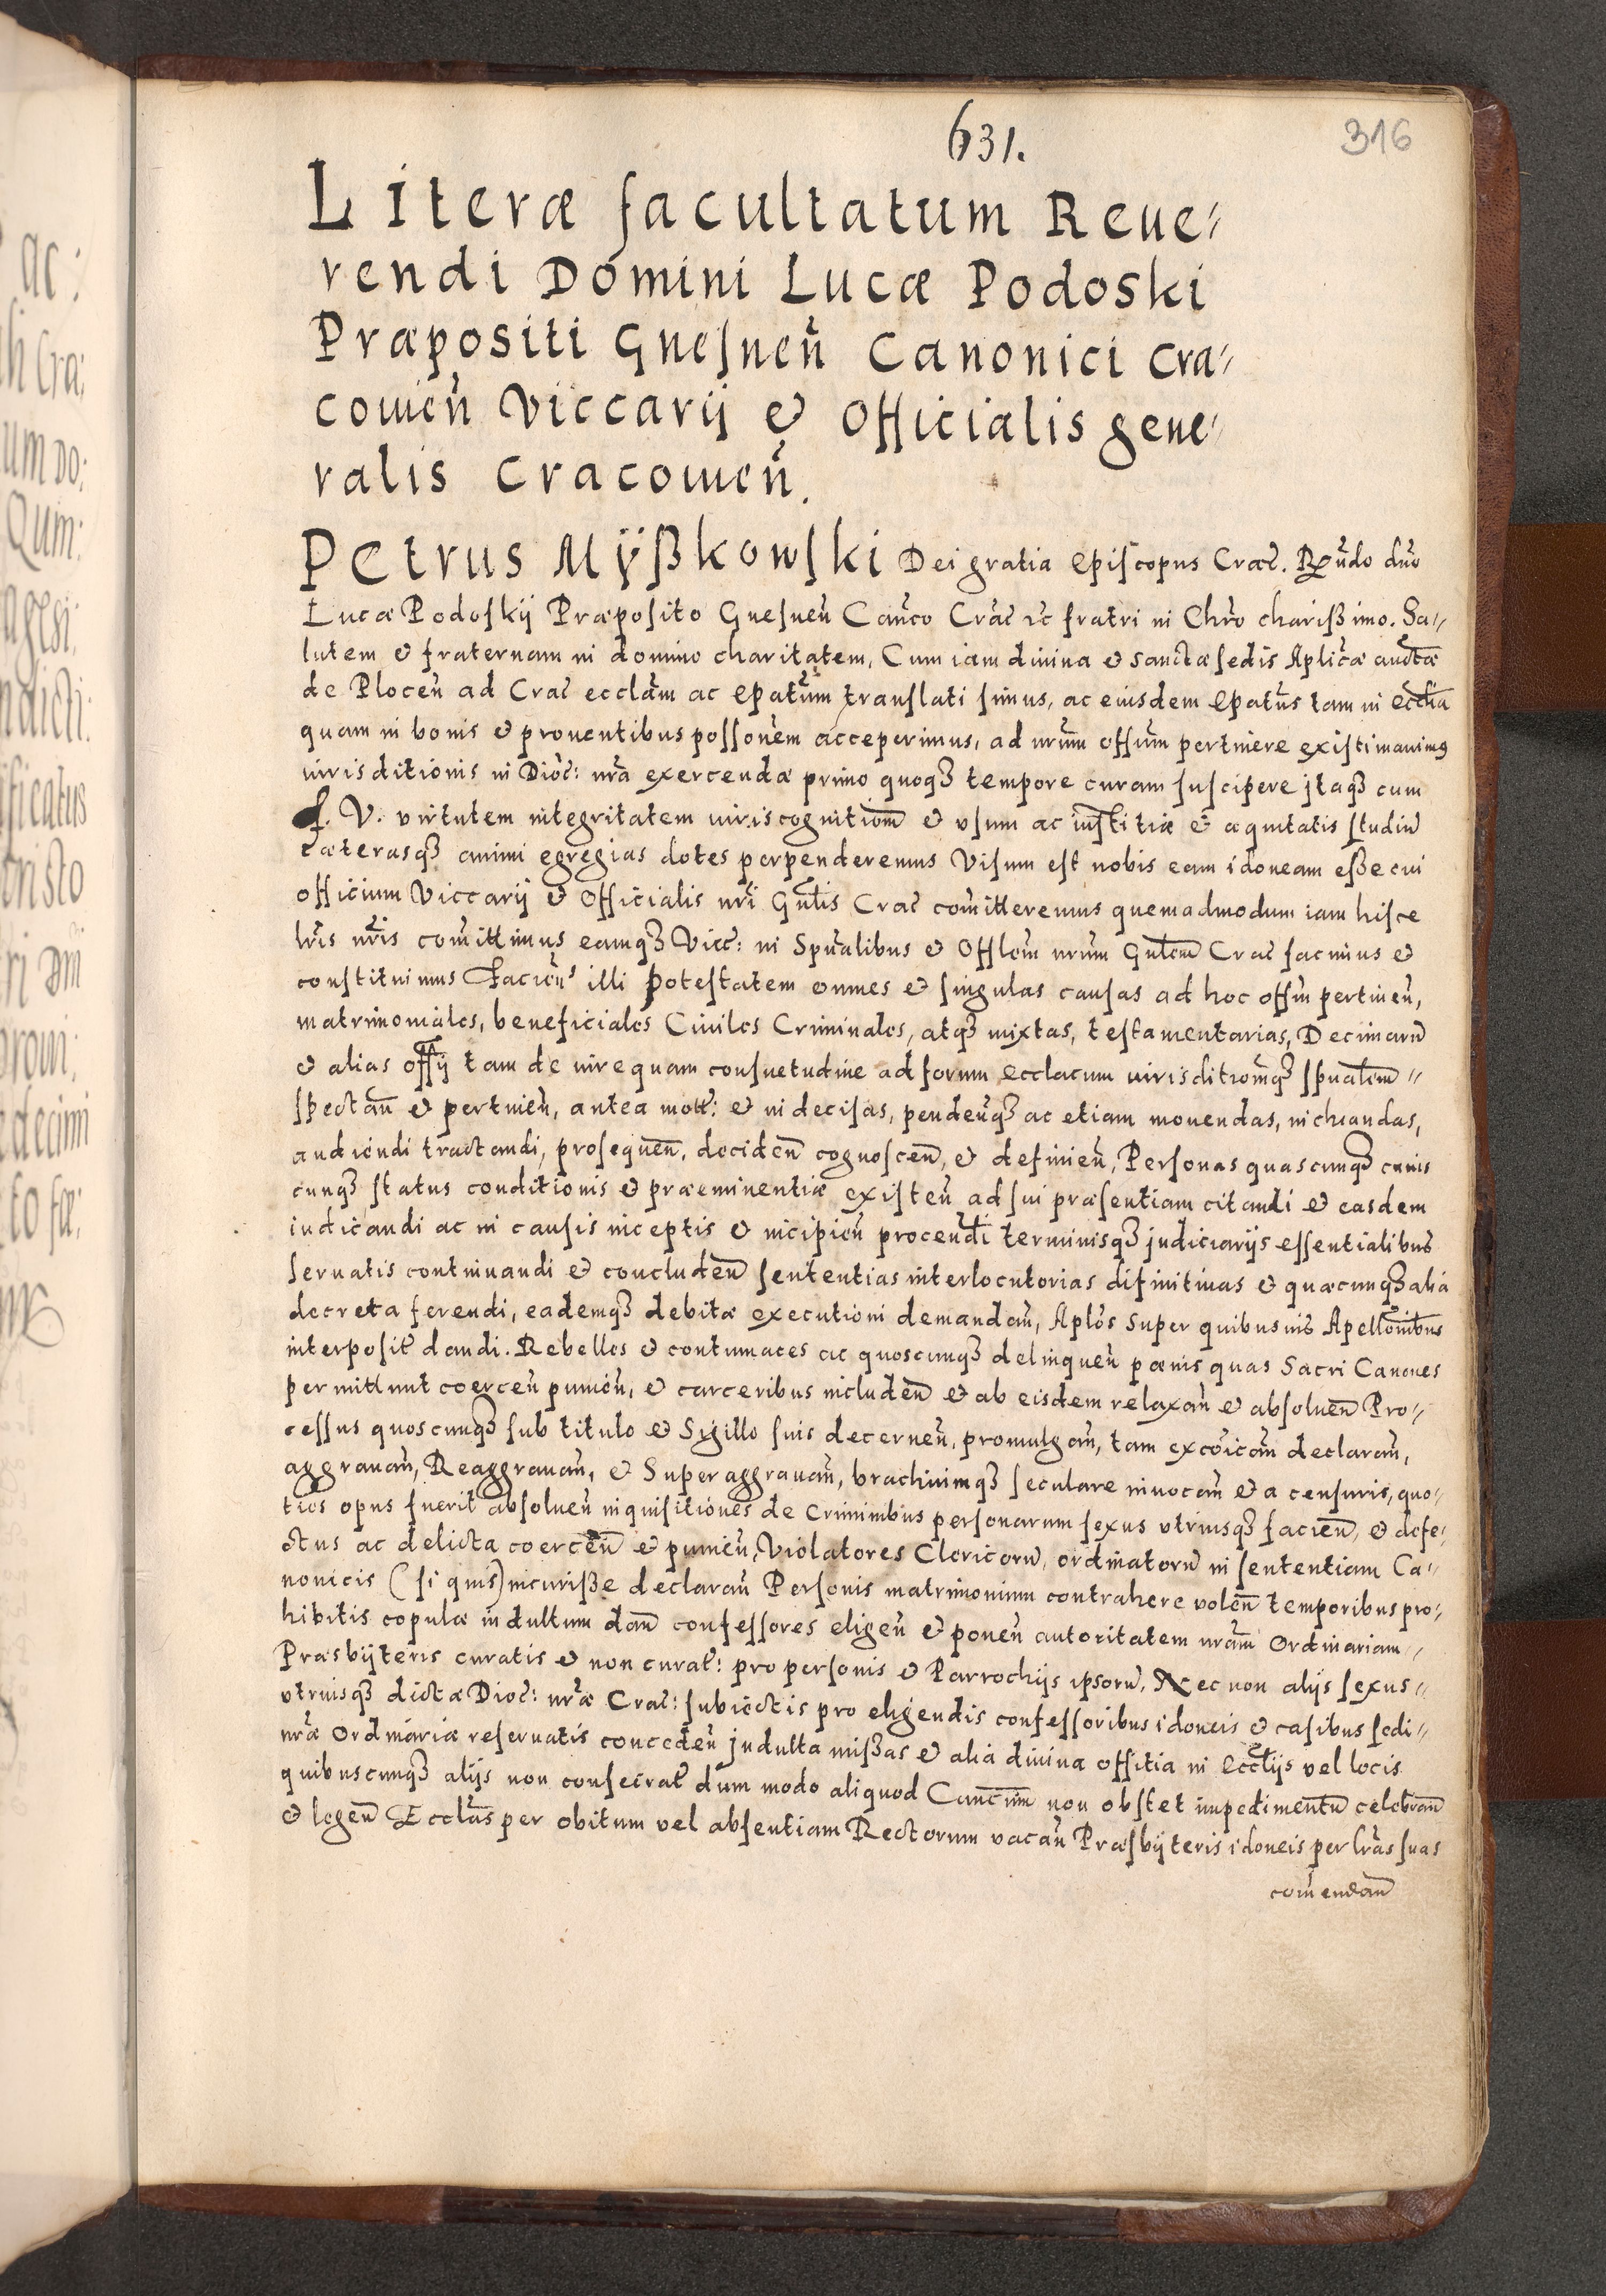 631.
316
Literæ facultatum Reue⸗
rendi Domini Lucæ Podoski
Præpositi Gneſneñ Canonici Cra⸗
couieñ Viccarij & Officialis gene⸗
ralis Cracouieñ.
Petrus Mÿßkowſki Dei gratia Epiſcopus Crac̃. Rṽdo dño
Lucæ Podoſkij Præpoſito Gneſneñ Cañco Crac̃ ꝛc̃ fratri in Chr̃o chariſsimo. Sa⸗
lutem & fraternam in domino charitatem, Cum iam diuina & sanctæ ſedis Apl̃icæ auctã
de Ploceñ ad Crac̃ eccl̃am ac Ep̃atum tranſlati ſimus, ac eiusdem Ep̃atus tam in eccl̃ia
quam in bonis & prouentibus poſſoñem acceperimus, ad nr̃um offũm pertinere exiſtimauimus
iurisditionis in Dioc̃: nr̃a exercendæ primo quoqȝ tempore curam ſuſcipere jtaqȝ cum
F. V. virtutem integritatem iuris cognitiom̃ & vſum ac iuſtitiæ & æquitatis ſtudiũ
cæterasqȝ animi egregias dotes perpenderemus Viſum eſt nobis eam idoneam eſße cui
officium Viccarij & Officialis nr̃i Gñlis Crac̃ com̃itteremus quemadmodum iam hiſce
lr̃is nr̃is com̃ittimus eamqȝ Vicc̃: in Spũalibus & Offl̃em nr̃um Gñlem Crac̃ facimus &
conſtituimus Facieñs illi Poteſtatem omnes & ſingulas cauſas ad hoc offm̃ pertineñ,
matrimoniales, beneficiales Ciuiles Criminales, atqȝ mixtas, teſtamentarias, Decimarũ
& alias offij tam de iure quam conſuetudine ad forum ecclacum iurisditiomq̃ȝ ſpualem̃ ⸗
ſpectañ & pertineñ, antea mott̃: & indeciſas, pendeñqȝ ac etiam mouendas, inchoandas,
audiendi tractandi, proſequeñ, decideñ cognoſceñ, & definieñ, Perſonas quascunqȝ cuius
cunqȝ ſtatus conditionis & præeminentiæ exiſteñ ad ſui præſentiam citandi & easdem
iudicandi ac in cauſis inceptis & incipieñ procendi terminisqȝ judiciarijs eſſentialibus
ſeruatis continuandi & concludeñ ſententias interlocutorias difinitiuas & quæcunqȝ alia
decreta ferendi, eademqȝ debitæ executioni demandañ, Apl̃os super quibusuis Apellonibus
interpoſit̃ dandi. Rebelles & contumaces ac quoscunqȝ delinqueñ pœnis quas Sacri Canones
permittunt coerceñ punieñ, & carceribus includeñ & ab eisdem relaxañ & abſolueñ Pro⸗
ceſſus quoscunqȝ ſub titulo & Sigillo ſuis decerneñ, promulgañ, tam excõicañ declarañ,
aggrauañ, Reaggrauañ, & Superaggrauañ, brachiumqȝ ſeculare inuocañ & a cenſuris, quo⸗
ties opus fuerit abſolueñ inquiſitiones de Criminibus perſonarum ſexus vtriusqȝ facieñ, & defe⸗
ctus ac delicta coerceñ & punieñ, Violatores Clericorũ, ordinatorũ in ſententiam Ca⸗
nonicis (ſi quis) incuriſße declarañ Perſonis matrimonium contrahere voleñ temporibus pro⸗
hibitis copulæ indultum dañ confeſſores eligeñ & poneñ autoritatem nr̃am Ordinariam ⸗
Præsbÿteris curatis & non curat̃: pro perſonis & Parrochijs ipsorũ, Nec non alijs ſexus ⸗
vtriusqȝ dictæ Dioc̃: nr̃æ Crac̃: ſubiectis pro eligendis confeſſoribus idoneis & caſibus ſedi ⸗
nr̃æ Ordinariæ reſeruatis concedeñ jndulta mißas & alia diuina offitia in Eccl̃ijs vel locis
quibuscunqȝ alijs non conſecrat̃ dum modo aliquod Cancũm non obſtet impedimentũ celebrañ
& legeñ Eccl̃as per obitum vel abſentiam Rectorum vacañ Præſbÿteris idoneis per lr̃as ſuas
com̃endañ